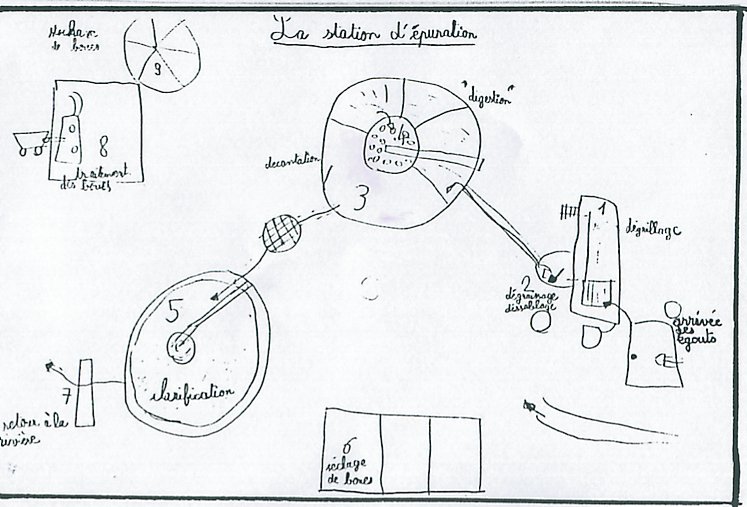 La station d'épuration
stockage
de boues
9
8
traitement
des boues
"digestion"
4
décantation
3
1
dégrillage
2
dégrainage
dessablage
arrivée
des
égouts
5
clarification
7
retour à la
rivière
6
séchage
de boues